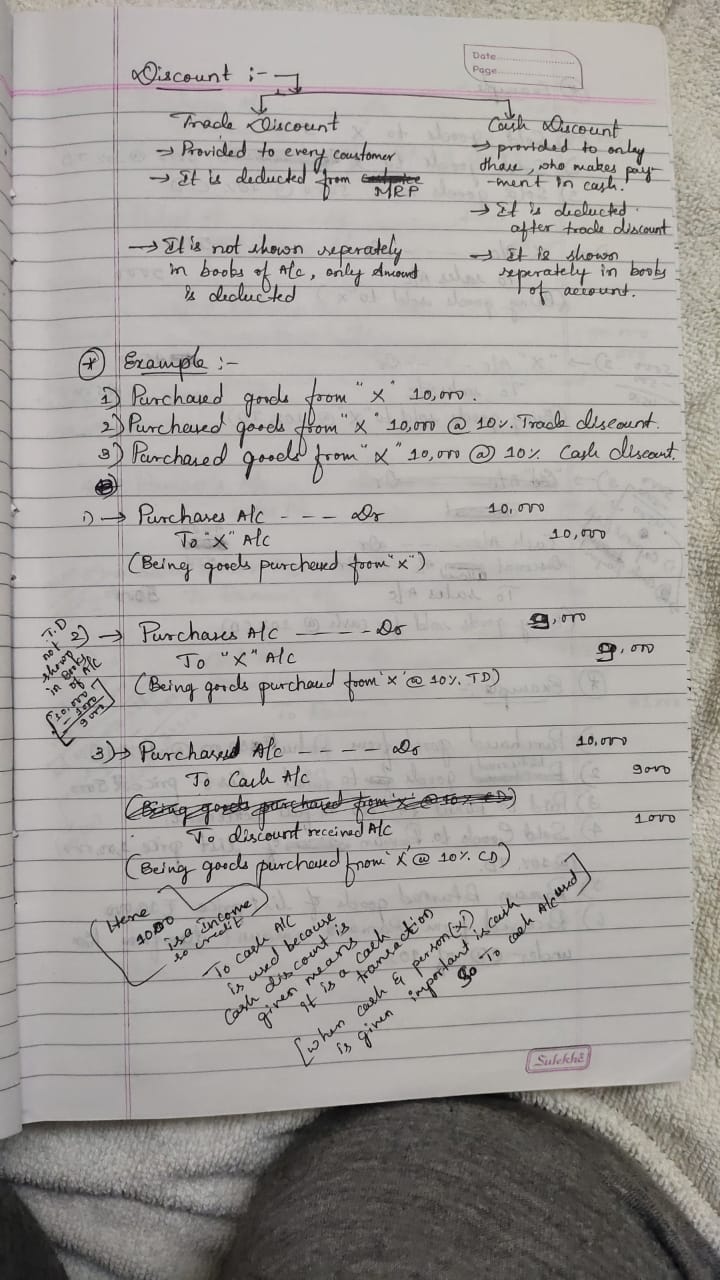 Date
Page
Discount :-
Trade Discount
→ Provided to every coustomer
→ It is deducted from
MRP
→ It is not shown seperately
in books of A/c, only Amount
is deducted
Cash Discount
→ provided to only
those, who makes pay
-ment in cash.
→ It is deducted
after trade discount
→ It is shown
seperately in books
of account.
* Example :-
1) Purchased goods from "X" 10,000.
2) Purchased goods from "X" 10,000 @ 10%. Trade discount.
3) Purchased goods from "X" 10,000 @ 10% Cash discount.
1) → Purchases A/c - - - Dr 10,000
To "X" A/c 10,000
(Being goods purchased from "X")
T.D
not
shown
in Books
of A/c
[10,000
- 1000
9000]
2) → Purchases A/c ----- Dr 9,000
To "X" A/c 9,000
(Being goods purchased from 'X' @ 10%. TD)
3) → Purchased A/c - - - - - Dr 10,000
To Cash A/c 9000
(Being goods purchased from 'X' @ 10% CD)
To discount received A/c 1000
(Being goods purchased from 'X' @ 10% CD)
[Here
1000
is a Income
so credit]
To cash A/c
is used because
Cash discount is
given means
it is a cash
transaction
[When cash & person(X)
is given important is cash
So To cash A/c used]
Sulekha